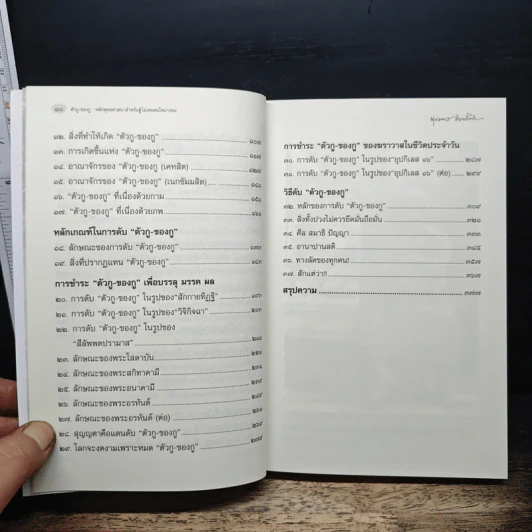 ๑๐ ตัวกู-ของกู : หลักพุทธศาสนาสำหรับผู้ไม่เคยสนใจมาก่อน
๑๒. สิ่งที่ทำให้เกิด "ตัวกู-ของกู" ๑๐๗
๑๓. การเกิดขึ้นแห่ง "ตัวกู-ของกู"
๑๔. อาณาจักรของ "ตัวกู-ของกู (เคหสิต)
๑๕. อาณาจักรของ "ตัวกู-ของกู" (เนกขัมมสิต)
๑๖. "ตัวกู-ของกู" ที่เนื่องด้วยกาม
๑๗. "ตัวกู-ของกู" ที่เนื่องด้วยภพ
หลักเกณฑ์ในการดับ "ตัวกู-ของกู"
๑๘. ลักษณะของการดับ "ตัวกู-ของกู" ๑๗๓
๑๙. สิ่งที่ปรากฏแทน "ตัวกู-ของกู" ๑๘๓
การชำระ "ตัวกู-ของกู" เพื่อบรรลุ มรรค ผล
๒๐. การดับ "ตัวกู-ของกู" ในรูปของ"สักกายทิฏฐิ" ๑๙๑
๒๑. การดับ "ตัวกู-ของกู" ในรูปของ"วิจิกิจฉา"
๒๒. การดับ "ตัวกู-ของกู" ในรูปของ
"สีลัพพตปรามาส"
๒๓. ลักษณะของพระโสดาบัน
๒๔. ลักษณะของพระสกิทาคามี
๒๕. ลักษณะของพระอนาคามี
๒๖. ลักษณะของพระอรหันต์
๒๗. ลักษณะของพระอรหันต์ (ต่อ)
๒๘. สุญญตาคือแดนดับ "ตัวกู-ของกู"
๒๙. โลกจะงดงามเพราะหมด "ตัวกู-ของกู" ๒๗๕
การชำระ "ตัวกู-ของกู" ของฆราวาสในชีวิตประจำวัน
๓๐. การดับ "ตัวกู-ของกู" ในรูปของ"อุปกิเลส ๑๖" ๒๘๗
๓๑. การดับ "ตัวกู-ของกู" ในรูปของ"อุปกิเลส ๑๖" (ต่อ) ๒๙๙
วิธีดับ "ตัวกู-ของกู"
๓๒. หลักของการดับ "ตัวกู-ของกู" ๓๐๙
๓๓. สิ่งทั้งปวงไม่ควรยึดมั่นถือมั่น ๓๒๑
๓๔. ศีล สมาธิ ปัญญา ๓๓๓
๓๕. อานาปานสติ ๓๔๕
๓๖. ทางลัดของทุกคน! ๓๕๗
๓๗. สักแต่ว่า!! ๓๖๗
สรุปความ ๓๗๗